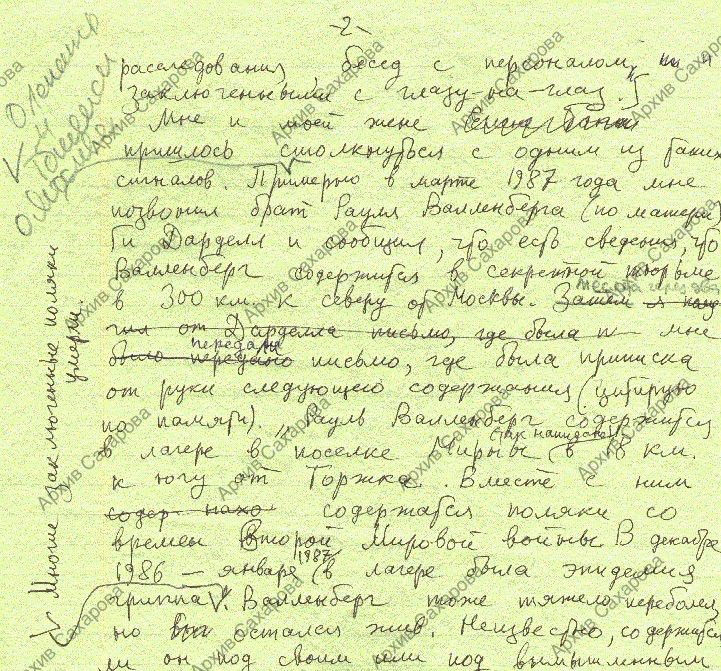 -2-
расследования, бесед с персоналом, и
заключенными с глазу-на-глаз.
Мне и моей жене
пришлось столкнуться с одним из таких
сигналов. Примерно в марте 1987 года мне
позвонил брат Рауля Валленберга (по матери)
Ги Дарделл и сообщил, что есть сведения, что
Валленберг содержится в секретной тюрьме
в 300 км. к северу от Москвы. Затем
от Дарделла письмо, где была мне
передали
было передано письмо, где была приписка
от руки следующего содержания (цитирую
по памяти). „Рауль Валленберг содержится
в лагере в поселке Мирный (так написано) в 18 км.
к югу от Торжка. Вместе с ним
содержатся поляки со
времен Второй Мировой войны. В декабре
1986 – январе 1987 в лагере была эпидемия
гриппа. Валленберг тоже тяжело переболел,
но остался жив. Неизвестно, содержится
ли он под своим или под вымышленным
Многие заключенные поляки
умерли.
Архив Сахарова